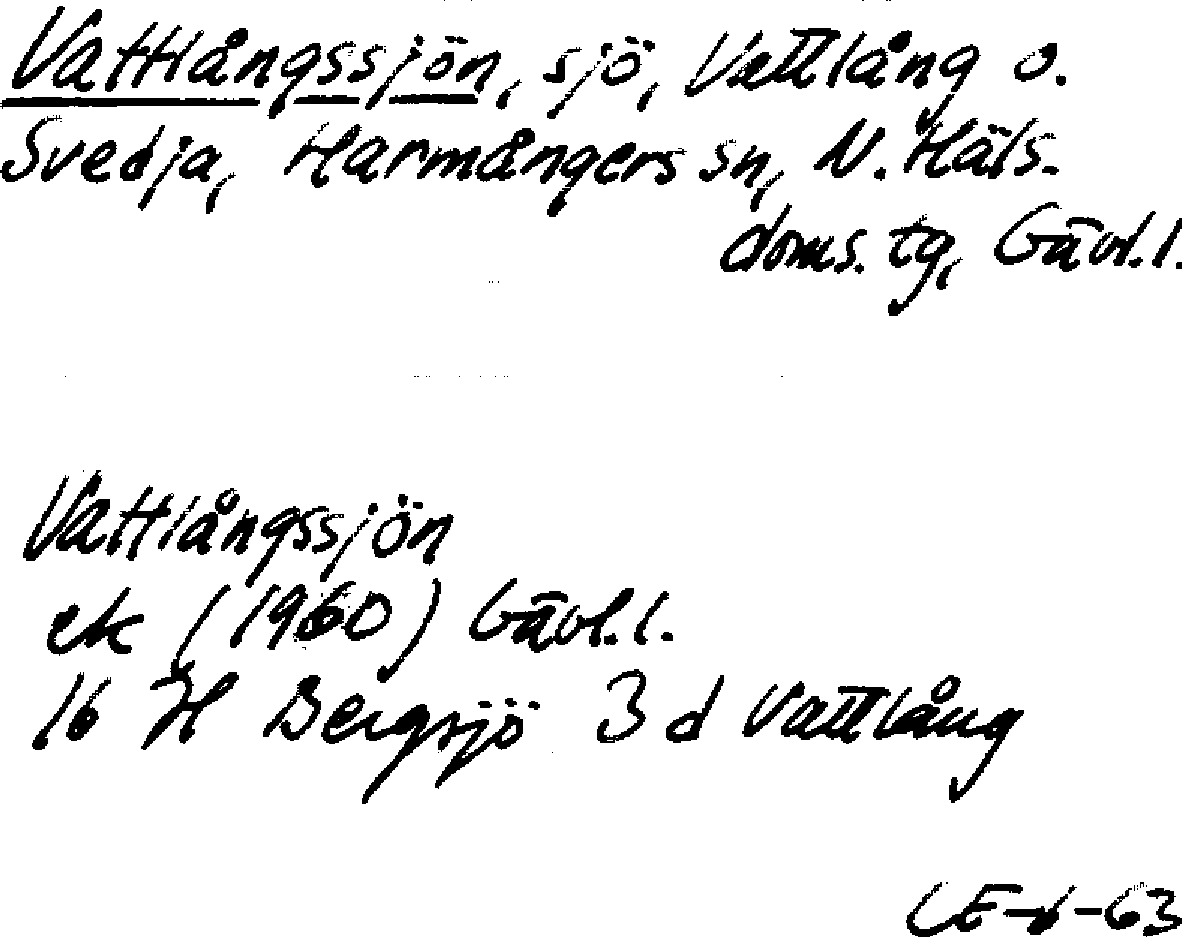 Vattlångssjön, sjö, Vattlång o.
Svedja, Harmångers sn, N. Häls.
doms. tg, Gävl. l.
Vattlångssjön
ek (1960) Gävl. l.
16 H Bergsjö 3 d Vattlång